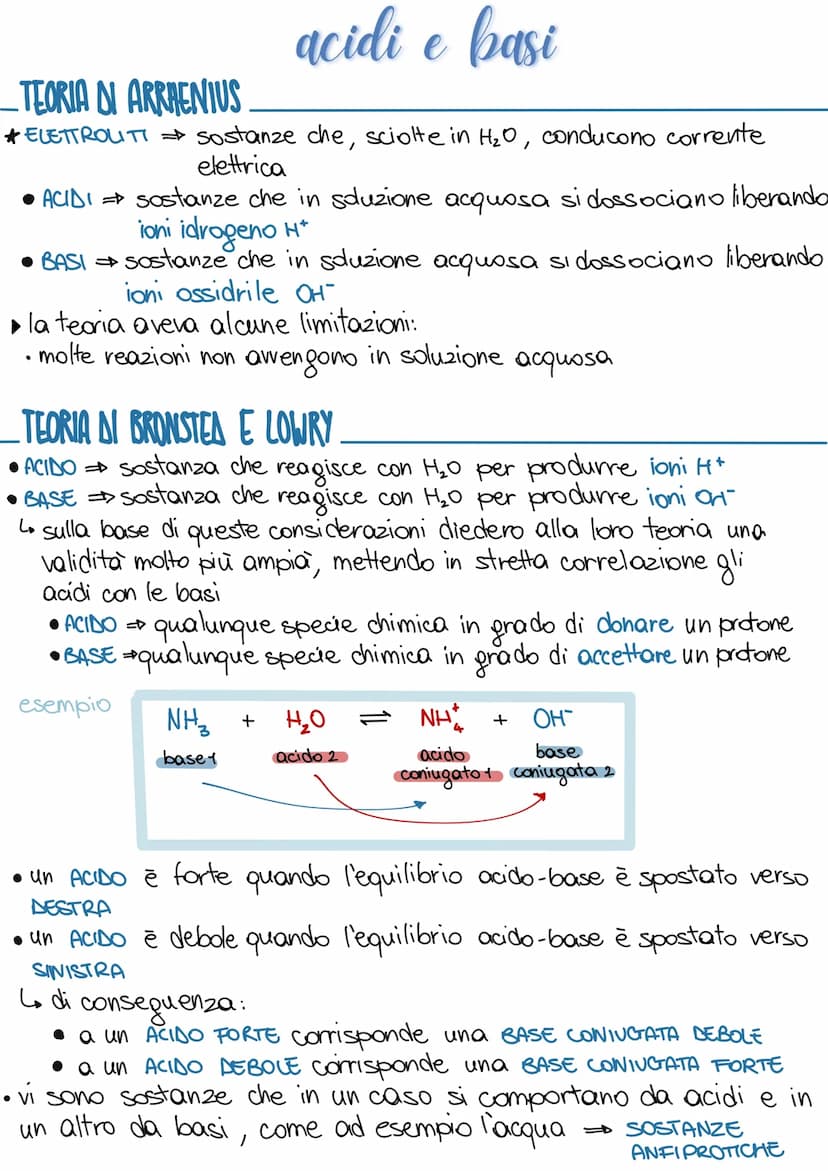 acidi e basi
TEORIA DI ARRHENIUS
★ ELETTROLITI ⇒ sostanze che, sciolte in H₂O, conducono corrente
elettrica
• ACIDI ⇒ sostanze che in soluzione acquosa si dossociano liberando
ioni idrogeno H⁺
• BASI ⇒ sostanze che in soluzione acquosa si dossociano liberando
ioni ossidrile OH⁻
▸ la teoria aveva alcune limitazioni:
· molte reazioni non avvengono in soluzione acquosa
TEORIA DI BRONSTED E LOWRY
• ACIDO ⇒ sostanza che reagisce con H₂O per produrre ioni H⁺
• BASE ⇒ sostanza che reagisce con H₂O per produrre ioni OH⁻
↳ sulla base di queste considerazioni diedero alla loro teoria una
validità molto più ampia, mettendo in stretta correlazione gli
acidi con le basi
• ACIDO ⇒ qualunque specie chimica in grado di donare un protone
• BASE ⇒ qualunque specie chimica in grado di accettare un protone
esempio
NH₃ + H₂O ⇌ NH₄⁺ + OH⁻
base 1 acido 2 acido coniugato 1 base coniugata 2
• un ACIDO è forte quando l'equilibrio acido-base è spostato verso
DESTRA
• un ACIDO è debole quando l'equilibrio acido-base è spostato verso
SINISTRA
↳ di conseguenza:
• a un ACIDO FORTE corrisponde una BASE CONIUGATA DEBOLE
• a un ACIDO DEBOLE corrisponde una BASE CONIUGATA FORTE
• vi sono sostanze che in un caso si comportano da acidi e in
un altro da basi, come ad esempio l'acqua ⇒ SOSTANZE
ANFIPROTICHE